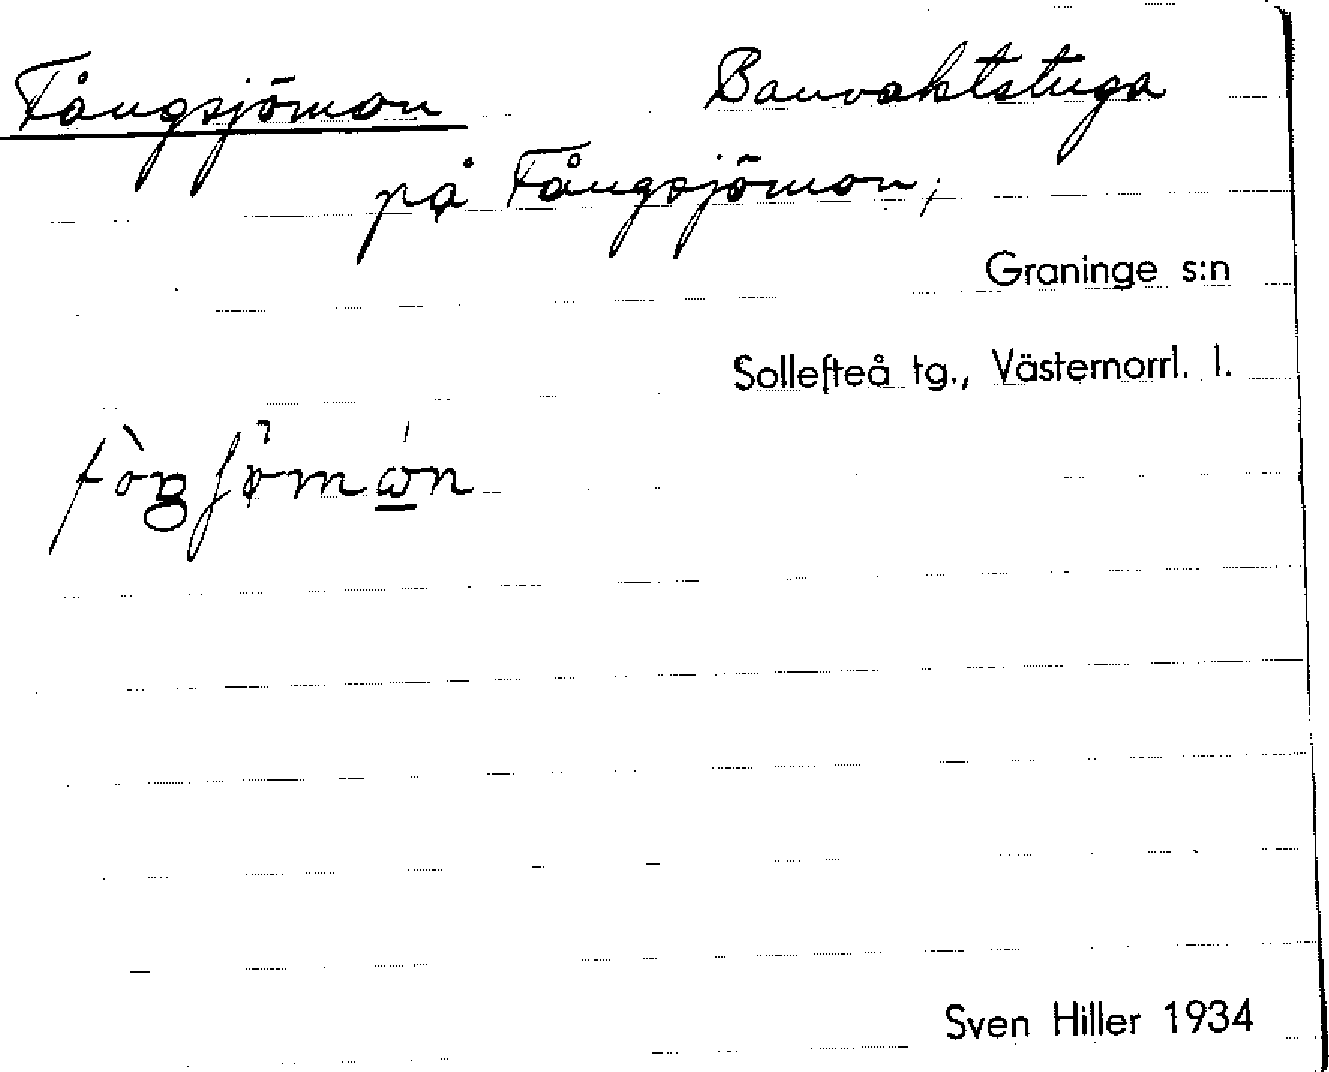 Fångsjömon Banvaktstuga
på Fångsjömon,
Graninge s:n
Sollefteå tg., Västernorrl. l.
Sven Hiller 1934